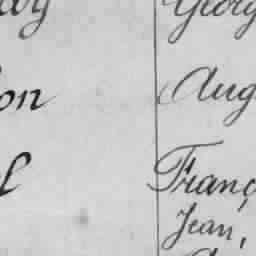 Georg
on Aug
l Franç
Jean,